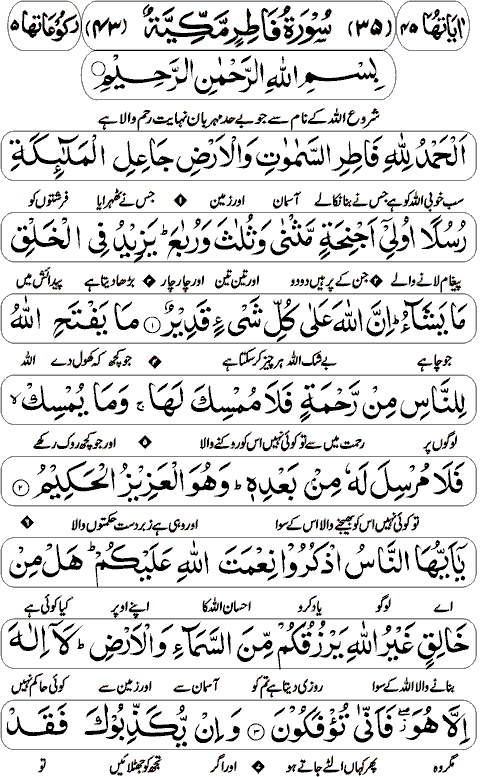 اٰیَاتُهَا ۴۵ (۳۵) سُوْرَةُ فَاطِرٍ مَّكِّيَّةٌ (۴۳) رُكُوْعَاتُهَا ۵
بِسْمِ اللّٰهِ الرَّحْمٰنِ الرَّحِیْمِ
شروع اللہ کے نام سے جو بے حد مہربان نہایت رحم والا ہے
اَلْحَمْدُ لِلّٰهِ فَاطِرِ السَّمٰوٰتِ وَالْاَرْضِ جَاعِلِ الْمَلٰٓئِكَةِ
سب خوبی اللہ کو ہے جس نے بنا نکالے آسمان اور زمین ۱ جس نے ٹھہرایا فرشتوں کو
رُسُلًا اُولِیْۤ اَجْنِحَةٍ مَّثْنٰی وَثُلٰثَ وَرُبٰعَ ؕ یَزِیْدُ فِی الْخَلْقِ
پیغام لانے والے ۲ جن کے پر ہیں دو دو اور تین تین اور چار چار ۳ بڑھا دیتا ہے پیدائش میں
مَا یَشَآءُ ؕ اِنَّ اللّٰهَ عَلٰی كُلِّ شَیْءٍ قَدِیْرٌ ۝۱ مَا یَفْتَحِ اللّٰهُ
جو چاہے بے شک اللہ ہر چیز کر سکتا ہے ۴ جو کچھ کہ کھول دے اللہ
لِلنَّاسِ مِنْ رَّحْمَةٍ فَلَا مُمْسِكَ لَهَا ۚ وَمَا یُمْسِكْ ۙ
لوگوں پر رحمت میں سے تو کوئی نہیں اس کو روکنے والا ۵ اور جو کچھ روک رکھے
فَلَا مُرْسِلَ لَهٗ مِنْۢ بَعْدِهٖ ؕ وَهُوَ الْعَزِیْزُ الْحَكِیْمُ ۝۲
تو کوئی نہیں اس کو بھیجنے والا اس کے سوا اور وہی ہے زبردست حکمتوں والا ۶
یٰۤاَیُّهَا النَّاسُ اذْكُرُوْا نِعْمَتَ اللّٰهِ عَلَیْكُمْ ؕ هَلْ مِنْ
اے لوگو یاد کرو احسان اللہ کا اپنے اوپر کیا کوئی ہے
خَالِقٍ غَیْرُ اللّٰهِ یَرْزُقُكُمْ مِّنَ السَّمَآءِ وَالْاَرْضِ ؕ لَاۤ اِلٰهَ
بنانے والا اللہ کے سوا روزی دیتا ہے تم کو آسمان سے اور زمین سے کوئی حاکم نہیں
اِلَّا هُوَ ۖ فَاَنّٰی تُؤْفَكُوْنَ ۝۳ وَاِنْ یُّكَذِّبُوْكَ فَقَدْ
مگر وہ پھر کہاں الٹے جاتے ہو اور اگر تجھ کو جھٹلائیں تو